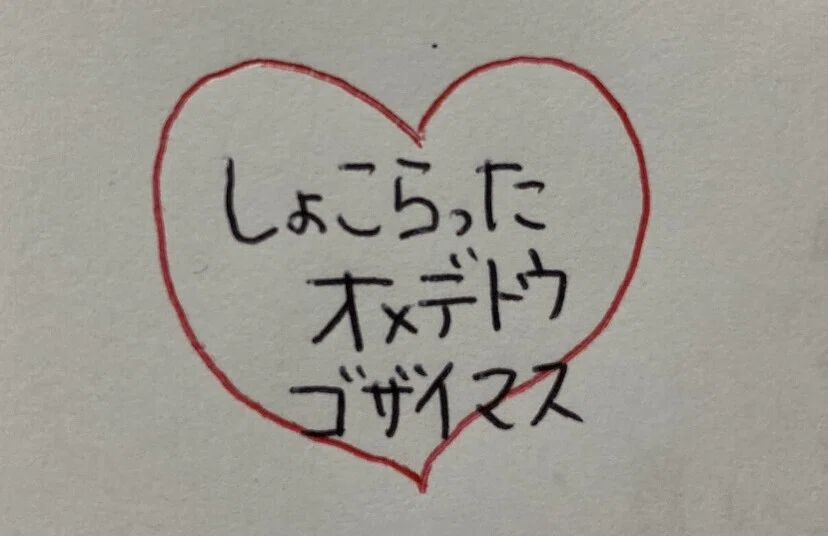 しょこらった
オメデドウ
ゴザイマス